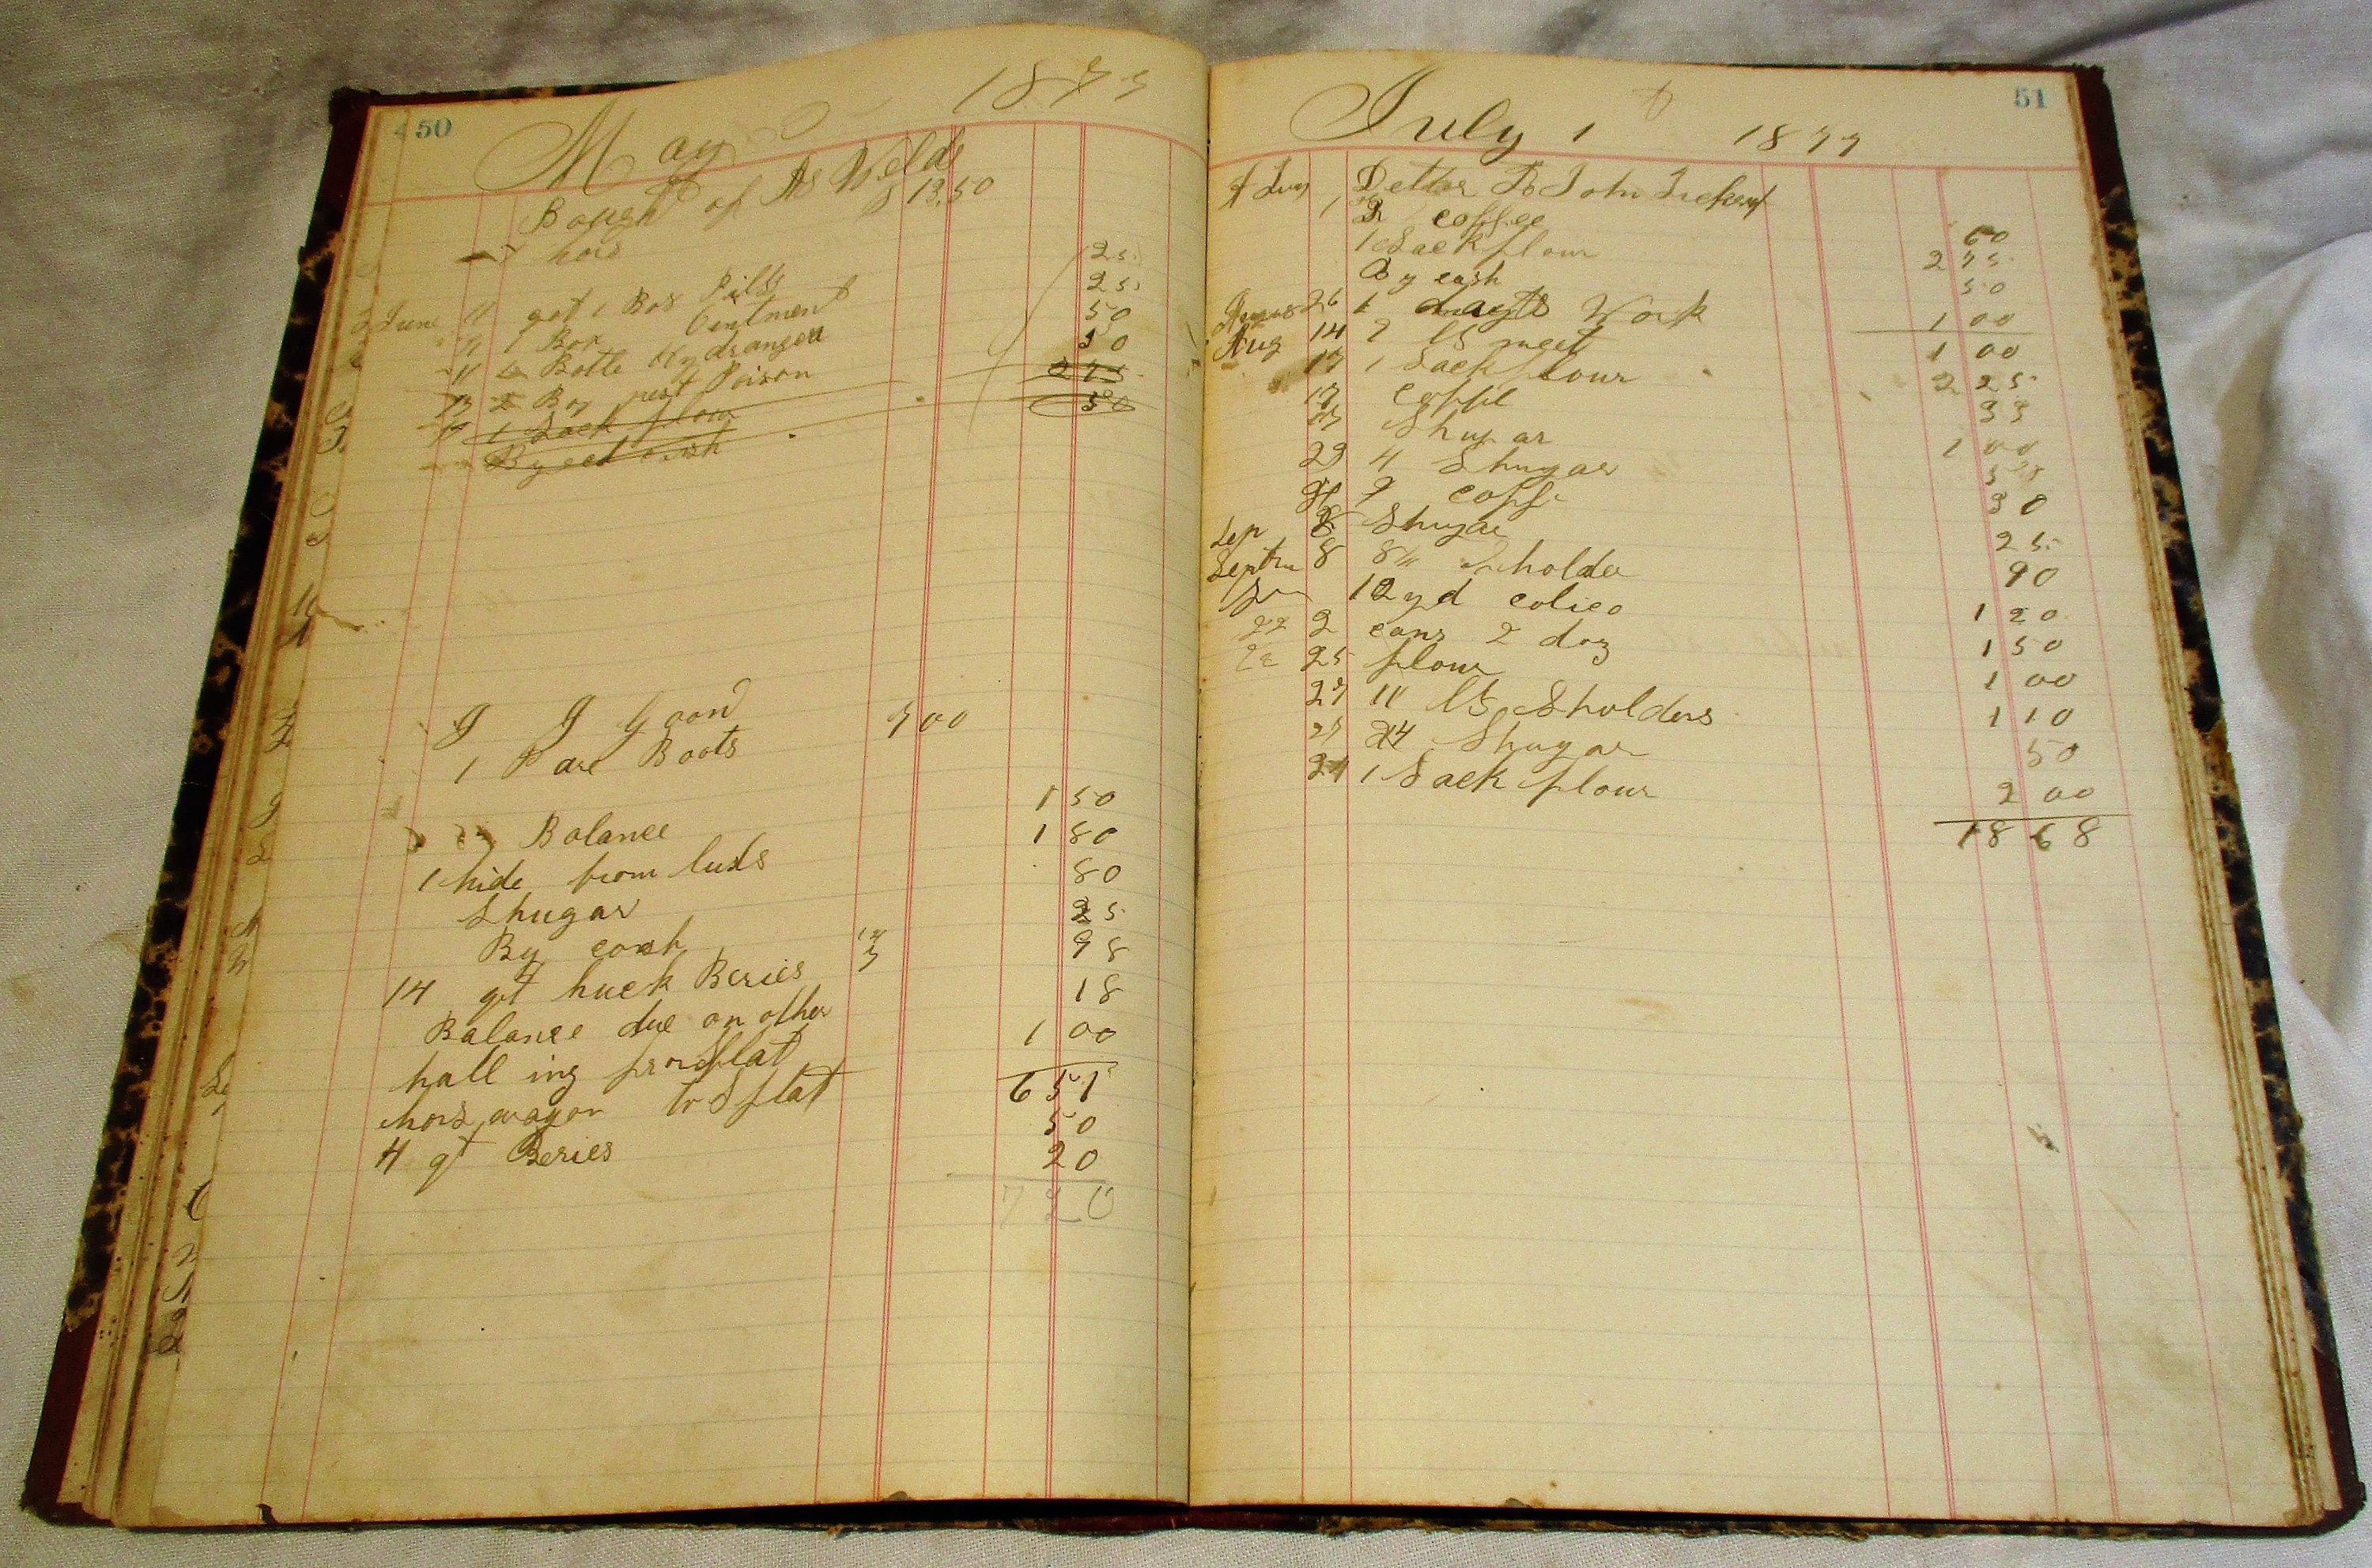 50
May 1877
Bought of As Welds
hors $ 13.50
June 11 got 1 Box Pills 25
11 1 Box Ointment 25
11 Botle Hydrangea 50
13 Box rest Poison 30
1 Sack flour 275
By cash 50
J J Goon
1 Pare Boots 700
Balance 1 50
1 hide from 1 80
Shugar 80
By cash 25
14 qt huck Beries 7 98
Balance due on other 18
hall ing from flat 1 00
6 51
hors wagon to flat 50
4 qt Beries 20
7 20
51
July 1 1877
1 Detter To John
2 coffee 60
1 Sack flour 2 75
By cash 50
26 1 days Work 1 00
Aug 14 7 lb meet 1 00
17 1 Sack flour 2 25
17 coffe 33
Shugar 1 00
29 4 Shugar
2 coffe 30
Sep 8 Shugar 25
Septm 8 8 lb Sholder 90
12 yd colico 1 20
22 2 cans 2 doz 1 50
25 flour 1 00
27 11 lb Sholders 1 10
Shugar 50
1 Sack flour 2 00
18 68